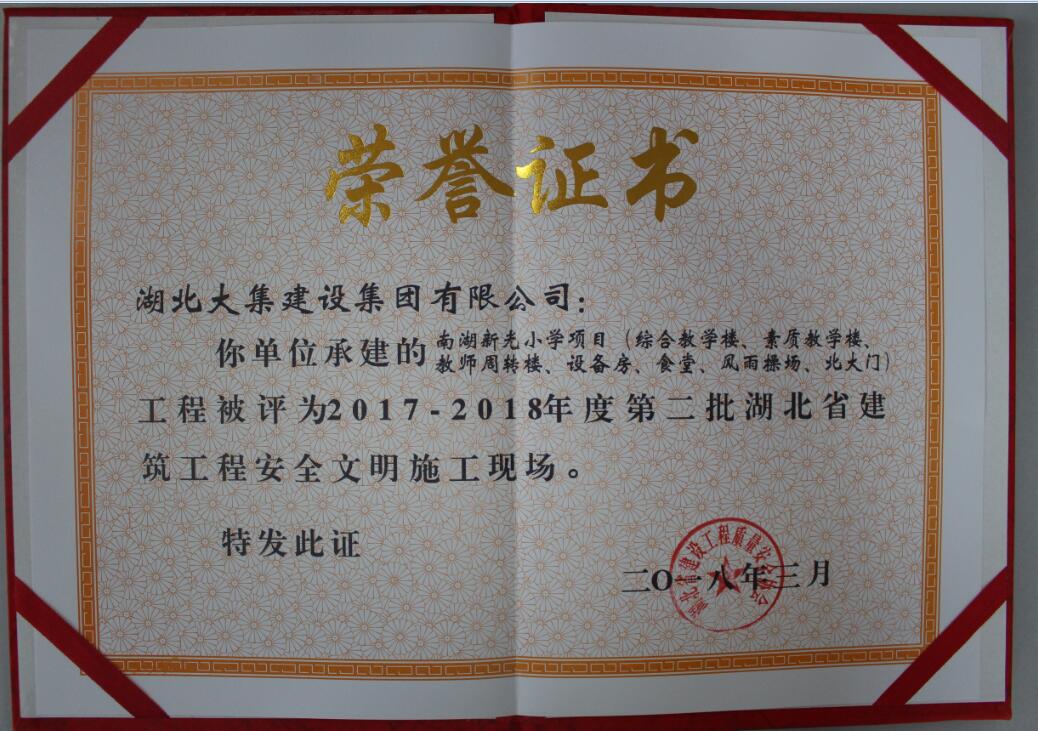 荣誉证书
湖北大集建设集团有限公司：
你单位承建的南湖新光小学项目（综合教学楼、素质教学楼、
教师周转楼、设备房、食堂、风雨操场、北大门）
工程被评为2017-2018年度第二批湖北省建
筑工程安全文明施工现场。
特发此证
二〇一八年三月
湖北省建设工程质量安全协会